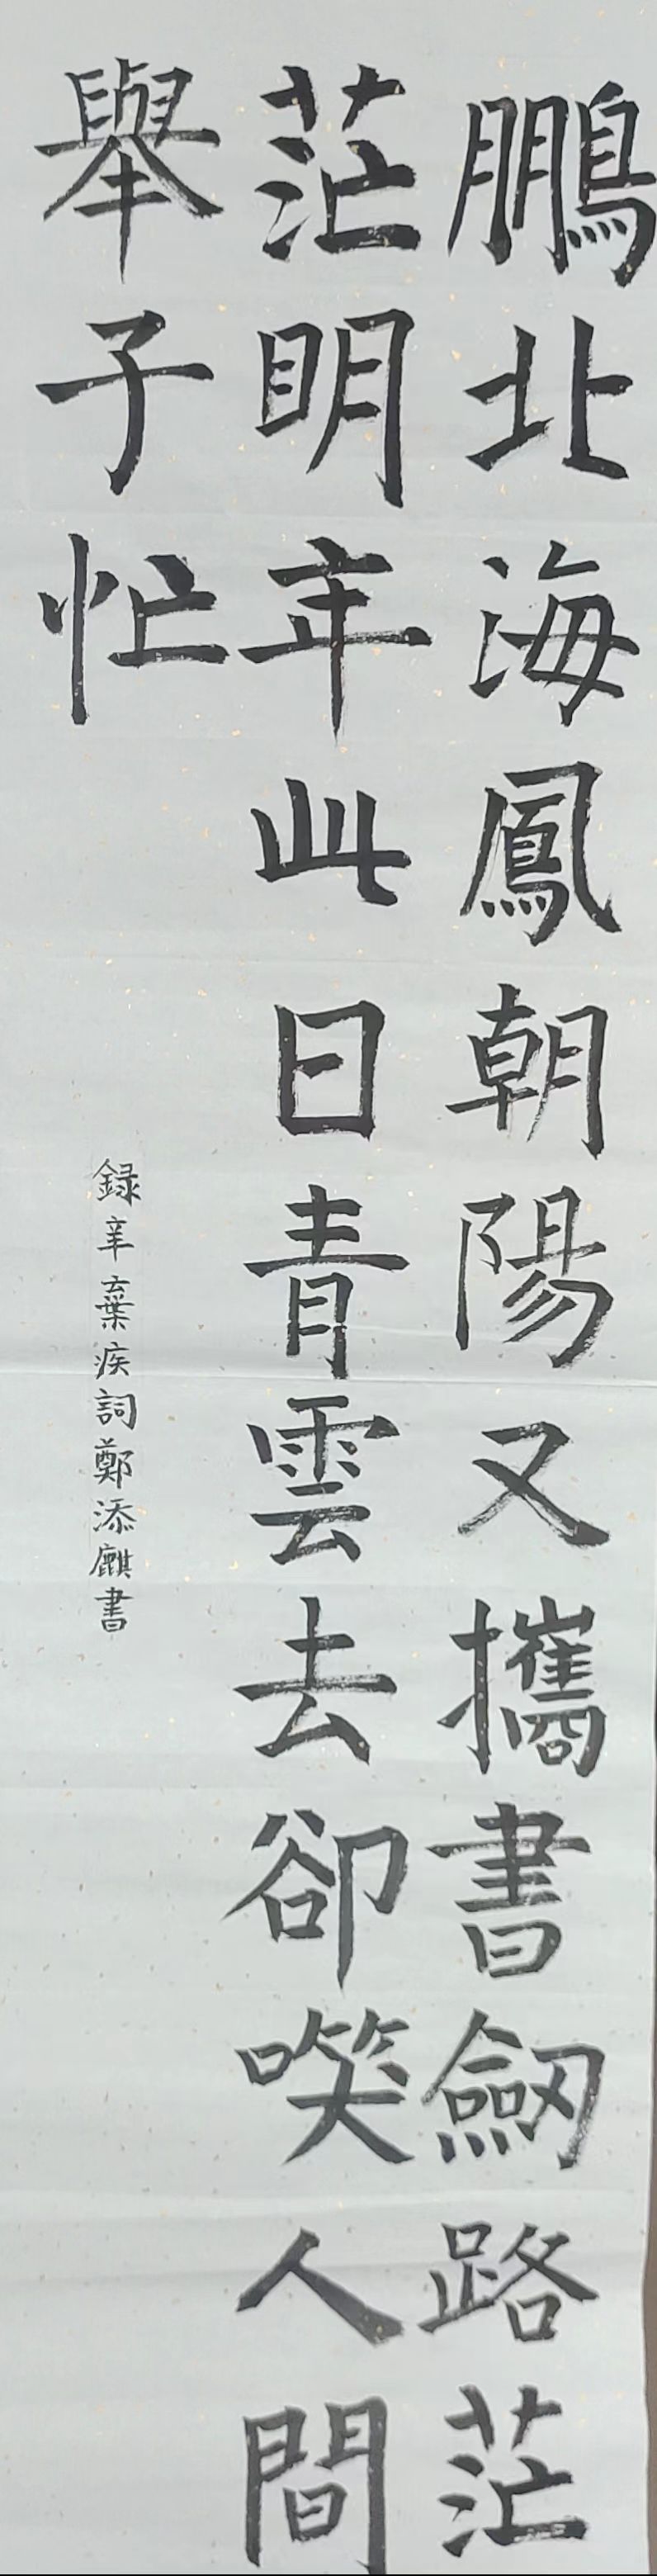 鵬北海鳳朝陽又攜書劒路茫
茫明年此日青雲去卻唉人間
舉子忙
録辛棄疾詞鄭添麒書